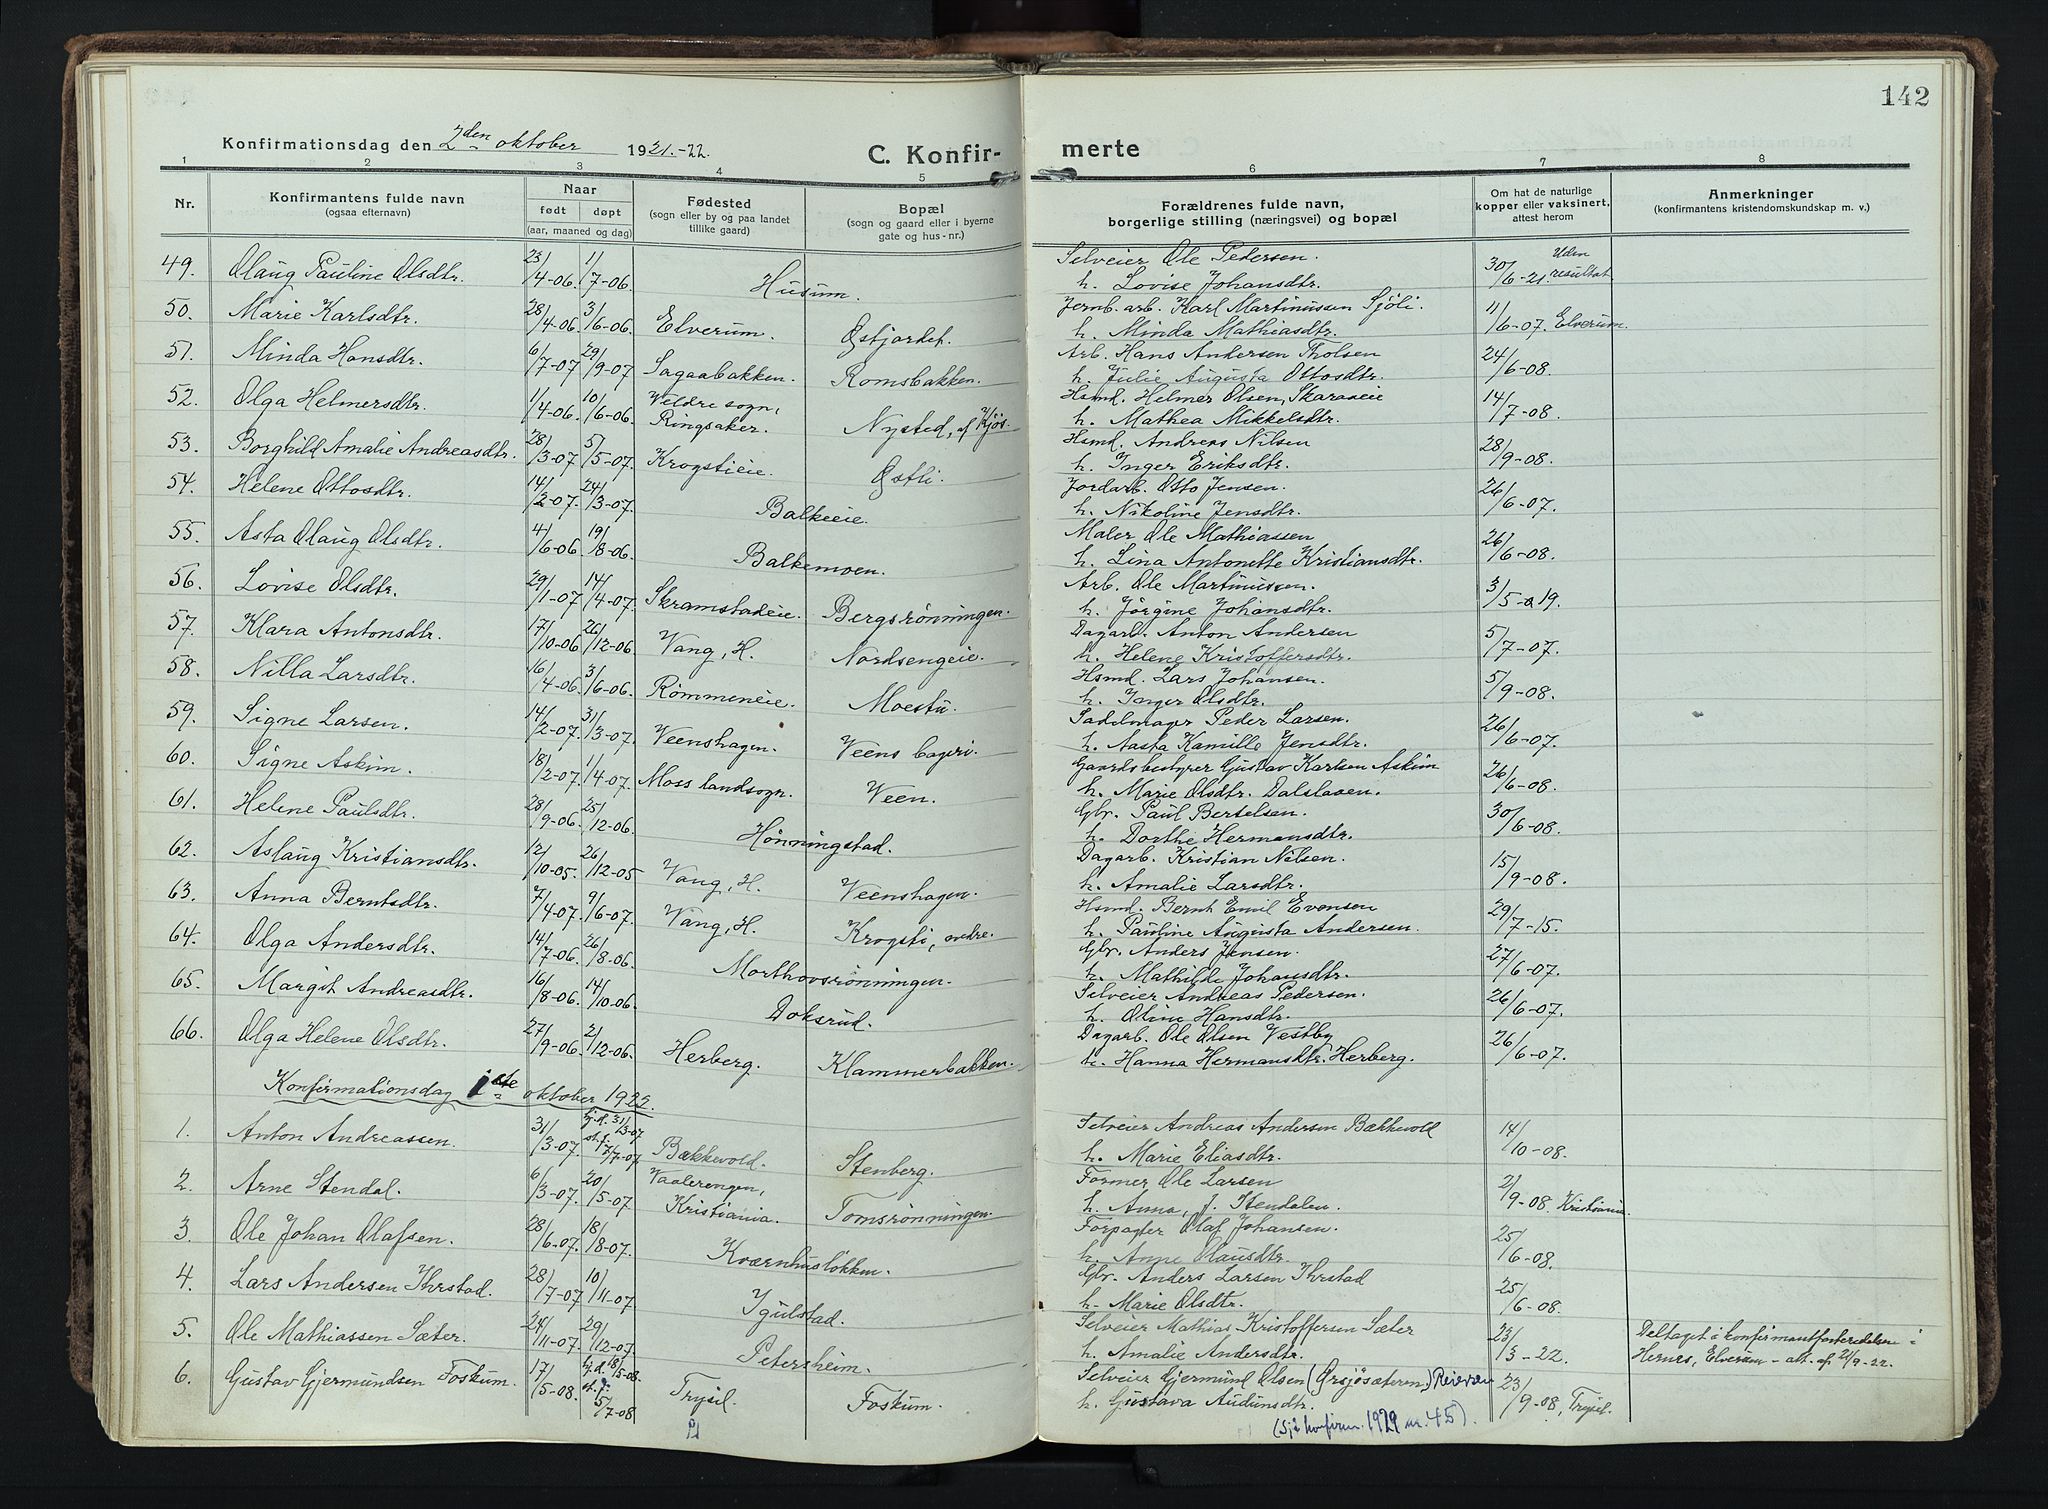 142
Konfirmationsdag den 2den oktober 1921.-22.
C. Konfir- merte
1 2 3 4 5 6 7 8
Nr. Konfirmantens fulde navn (ogsaa efternavn) Naar født døpt (aar, maaned og dag) Fødested (sogn eller by og paa landet tillike gaard) Bopæl (sogn og gaard eller i byerne gate og hus-nr.) Forældrenes fulde navn, borgerlige stilling (næringsvei) og bopæl Om hat de naturlige kopper eller vaksinert, attest herom Anmerkninger (konfirmantens kristendomskundskap m. v.)
49. Olaug Pauline Olsdtr. 23/4-06. 1/7-06. Husum. Selveier Ole Pedersen. 30/6-21. Uden resultat
h. Lovise Johansdtr.
50. Marie Karlsdtr. 28/4-06. 3/6-06. Elverum. Østjordet. Jernb. arb. Karl Martinussen Sjöli. 11/6-07. Elverum.
h. Minda Mathiasdtr.
51. Minda Hansdtr. 6/7-07 29/9-07 Sagaabakken. Romsbakken. Arb. Hans Andersen Tholsen 24/6-08.
h. Julie Augusta Ottosdtr.
52. Olga Helmersdtr. 1/4-06. 10/6-06. Veldre sogn, Ringsaker. Nysted, af Kjös. Hsmd. Helmer Olsen, Skaraseie 14/7-08.
h. Mathea Mikkelsdtr.
53. Borghild Amalie Andreasdtr. 28/3-07. 5/5-07. Krogstieie. Østli. Hsmd. Andreas Nilsen 28/9-08.
h. Inger Eriksdtr.
54. Helene Ottosdtr. 14/2-07. 24/3-07. Balkeeie. Jordarb. Otto Jensen. 26/6-07.
h. Nikoline Jensdtr.
55. Asta Olaug Olsdtr. 4/6-06. 19/8-06. Balkemoen. Maler Ole Mathiassen 26/6-08.
h. Lina Antonette Kristiansdtr.
56. Lovise Olsdtr. 29/1-07 14/4-07. Skramstadeie. Bergsrønningen. Arb. Ole Martinussen. 3/5-19.
h. Jørgine Johansdtr.
57. Klara Antonsdtr. 17/10-06 26/12-06. Vang, H. Nordsengeie. Dagarb. Anton Andersen 5/7-07.
h. Helene Kristoffersdtr.
58. Nilla Larsdtr. 16/4-06. 3/6-06. Rømmeneie. Moestu. Hsmd. Lars Johansen. 5/9-08.
h. Inger Olsdtr.
59. Signe Larsen. 14/2-07. 31/3-07. Veenshagen. Veens bageri. Sadelmager Peder Larsen. 26/6-07.
h. Aasta Kamille Jensdtr.
60. Signe Askim. 18/2-07. 1/4-07. Moss landsogn. Veen. Gaardsbestyrer Gustav Karlsen Askim 26/6-08.
h. Marie Olsdtr. Dalslaaen.
61. Helene Paulsdtr. 28/9-06. 25/12-06. Hønningstad. Gbr. Paul Bertelsen. 30/6-08.
h. Dorthe Hermansdtr.
62. Aslaug Kristiansdtr. 12/10-05. 26/12-05 Vang, H. Veenshagen. Dagarb. Kristian Nilsen. 15/9-08.
h. Amalie Larsdtr.
63. Anna Berntsdtr. 7/4-07. 9/6-07. Vang, H. Krogsti, nedre. Hsmd. Bernt Emil Evensen 29/7-15.
h. Pauline Augusta Andersen.
64. Olga Andersdtr. 14/7-06. 26/8-06. Morthovsrønningen. Gbr. Anders Jensen. 27/6-07.
h. Mathilde Johansdtr.
65. Margit Andreasdtr. 16/8-06. 14/10-06. Doksrud. Selveier Andreas Pedersen. 26/6-07.
h. Oline Hansdtr.
66. Olga Helene Olsdtr. 27/9-06. 2/12-06. Herberg. Klammerbakken. Dagarb. Ole Olsen Vestby 26/6-07.
h. Hanna Hermansdtr. Herberg.
Konfirmationsdag 1ste oktober 1922.
1. Anton Andreassen. 31/3-07. hj.d. 31/3-07 st.f. 7/7-07 Bækkevold. Stenberg. Selveier Andreas Andersen Bækkevold 14/10-08.
h. Marie Eliasdtr.
2. Arne Stendal. 6/3-07. 20/5-07 Vaalerengen, Kristiania. Tomsrønningen. Former Ole Larsen 2/9-08. Kristiania.
h. Anna, f. Stendalen.
3. Ole Johan Olafsen. 28/6-07. 18/8-07. Kværnhusløkken. Forpagter Olaf Johansen. 25/6-08.
h. Anne Olausdtr.
4. Lars Andersen Ihrstad. 28/7-07 10/11-07. Igulstad. Gbr. Anders Larsen Ihrstad 25/6-08.
h. Marie Olsdtr.
5. Ole Mathiassen Sæter. 24/11-07. 29/12-07. Petersheim. Selveier Mathias Kristoffersen Sæter 23/3-22. Deltaget i konfirmantforberedelsen i Hernes, Elverum - att. af 21/9-22.
h. Amalie Andersdtr.
6. Gustav Gjermundsen Foskum. 17/5-08. hj.d. 18/5-08. st.f. 5/7-08 Trysil. Foskum. Selveier Gjermund Olsen (Ørsjøsæteren) Reiersen 23/9-08, Trysil.
h. Gustava Audunsdtr.
(Sjå konfirm. 1929 nr. 45).